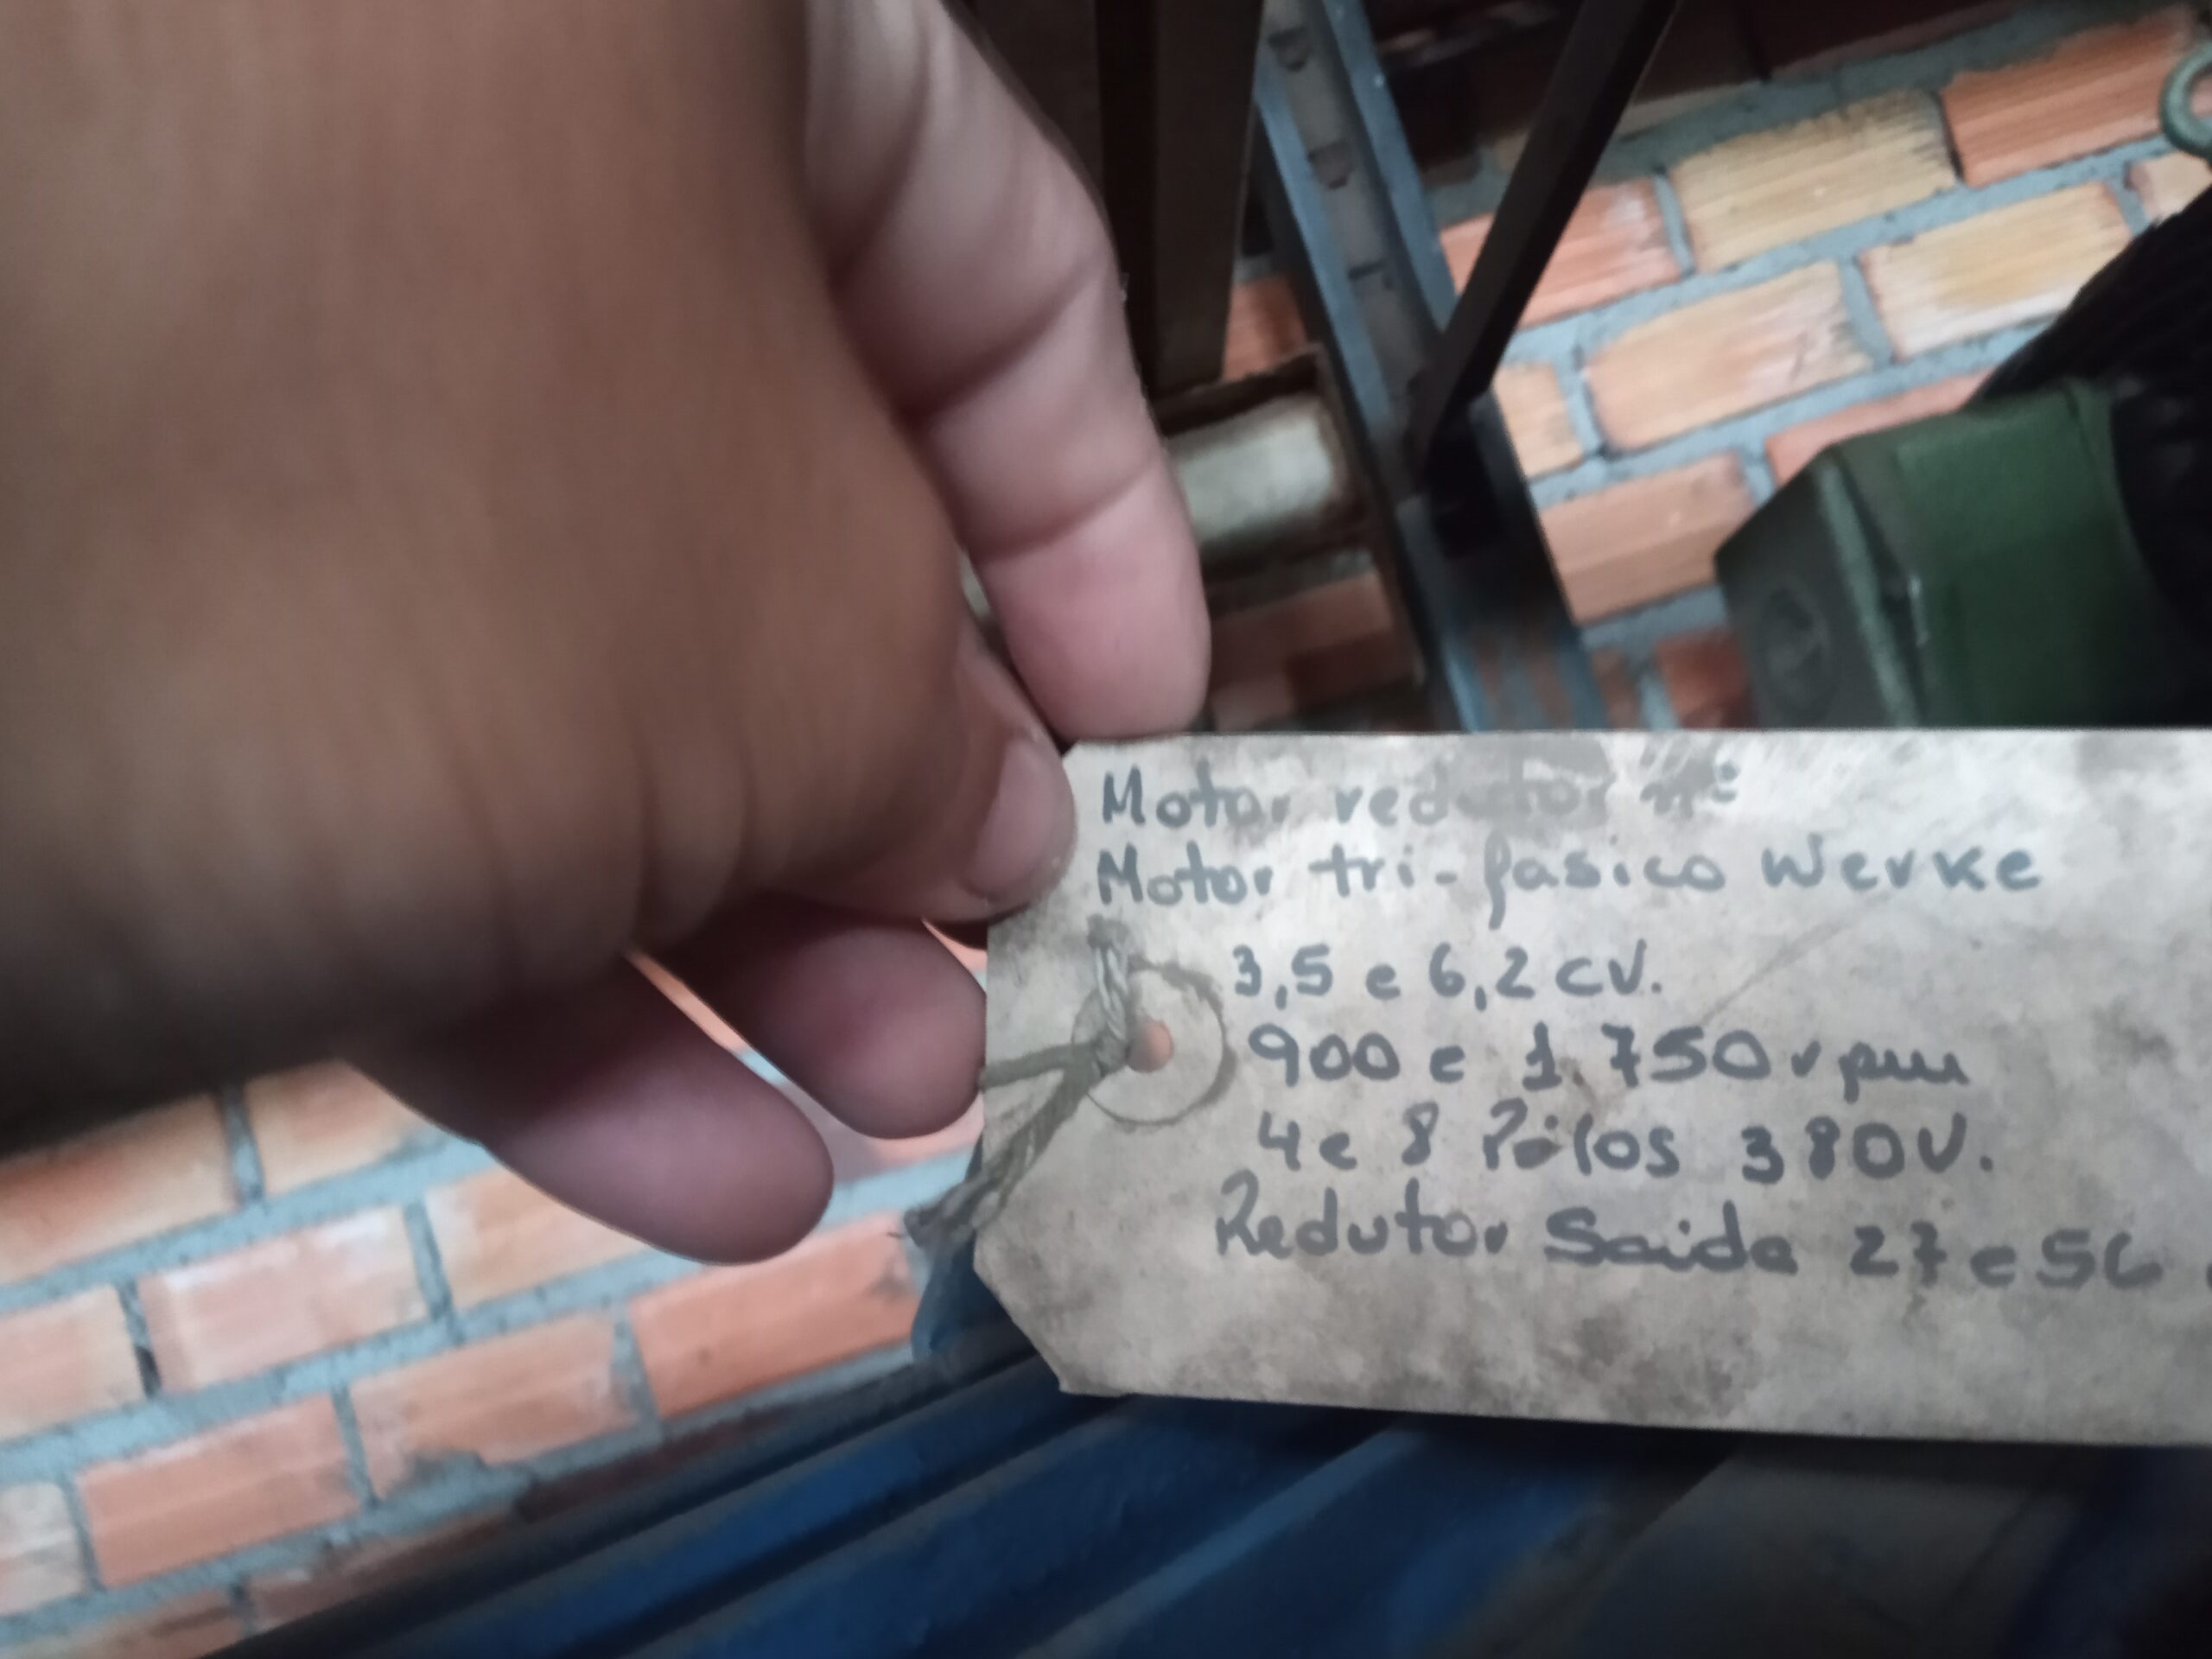 Motor redutor nº:
Motor tri-fasico Werke
3,5 e 6,2 CV.
900 e 1.750 rpm
4 e 8 Pólos 380V.
Redutor Saida 27 e